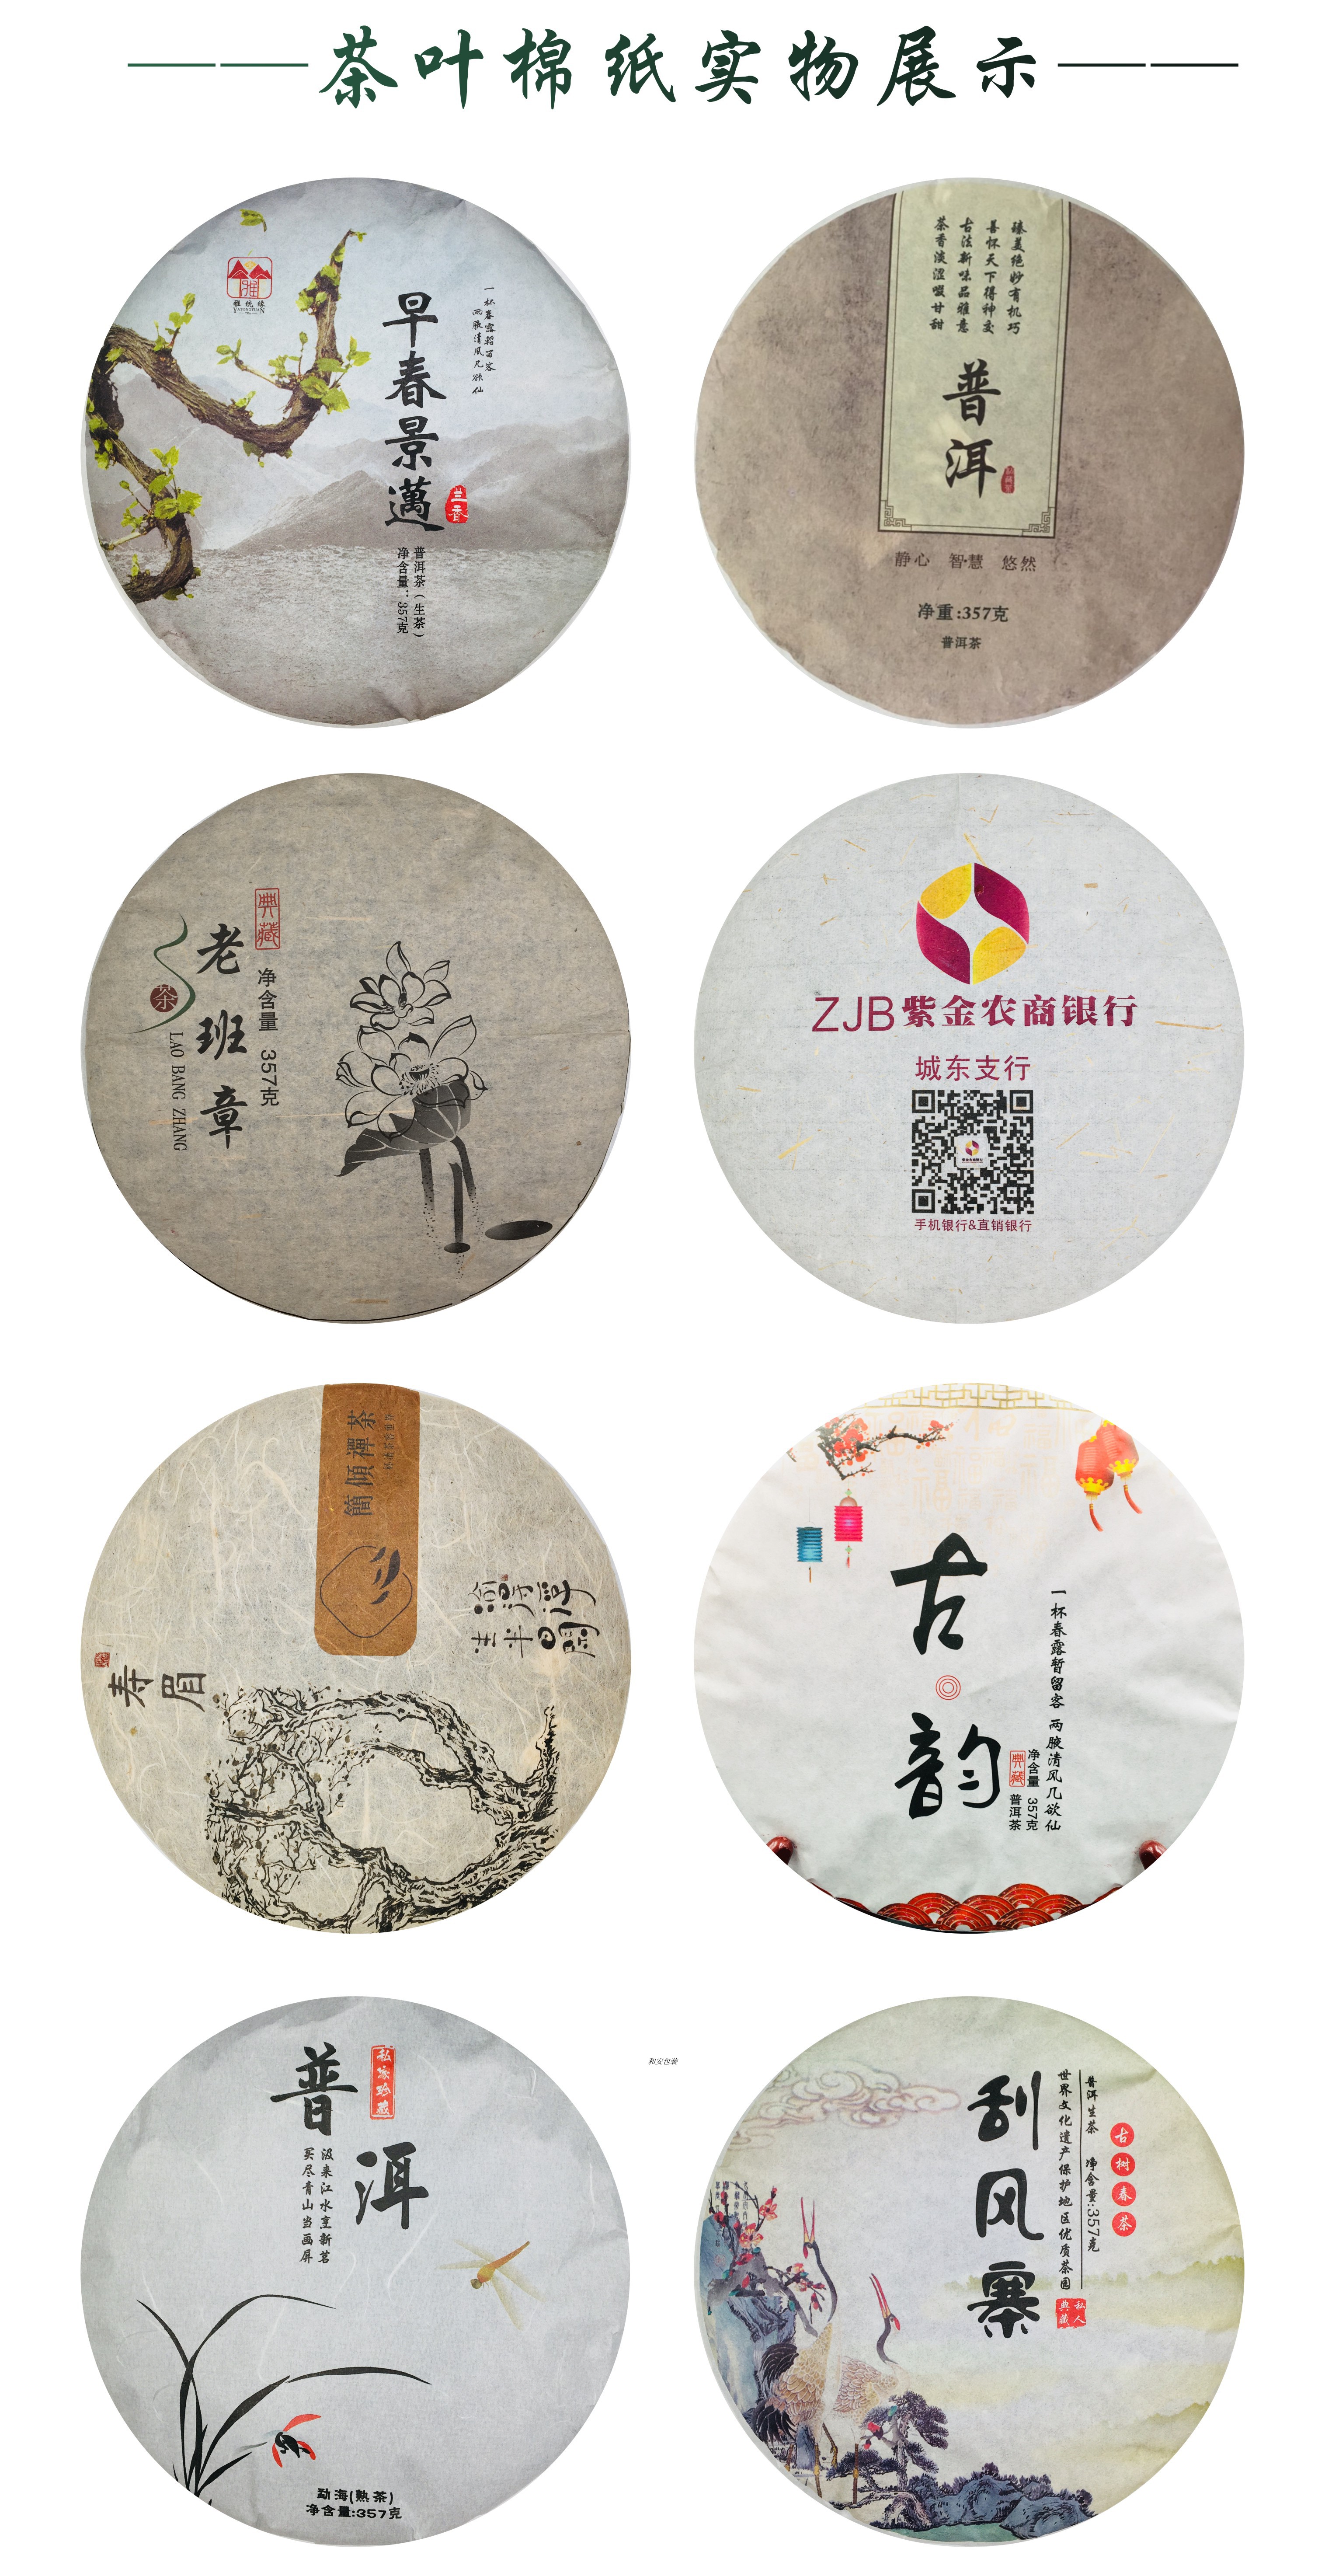 茶叶棉纸实物展示
雅统缘
早春景邁
一杯春露暂留客
两腋清风几欲仙
兰香
普洱茶（生茶）
净含量：357克
臻美绝妙有机巧
善怀天下得神交
古法新味品雅意
茶香淡涩啜甘甜
普洱
静心 智慧 悠然
净重:357克
普洱茶
典藏
净含量 357克
老班章
茶
LAO BANG ZHANG
ZJB紫金农商银行
城东支行
手机银行&直销银行
簡傾禪茶
寿眉
古韵
一杯春露暂留客 两腋清风几欲仙
净含量 357克
典藏 普洱茶
普洱
私家珍藏
汲来江水烹新茗
买尽青山当画屏
勐海(熟茶)
净含量:357克
和安包装
刮风寨
古树春茶
普洱生茶 净含量:357克
世界文化遗产保护地区优质茶园
私人典藏